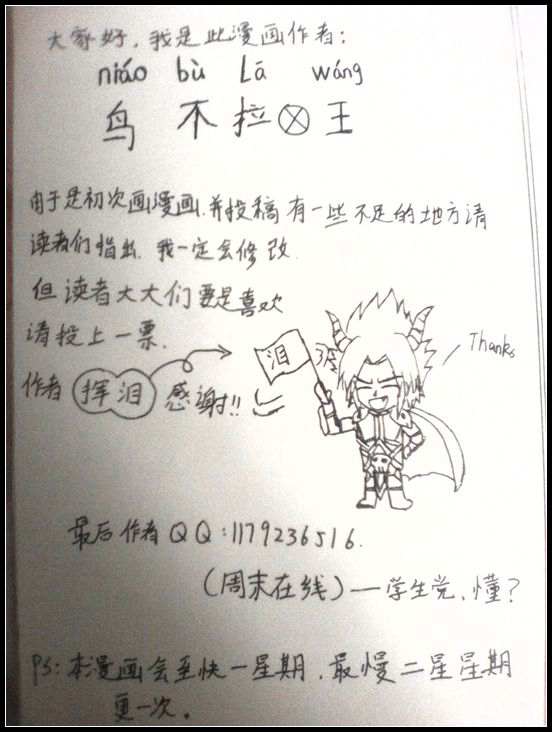 大家好，我是此漫画作者：
niáo bù Lā wáng
鸟 不 拉 ⊗ 王
由于是初次画漫画，并投稿有一些不足的地方请
读者们指出，我一定会修改.
但读者大大们要是喜欢
请投上一票.
作者 挥泪 感谢!!
泪
Thanks
最后作者QQ：1179236516.
（周末在线）—学生党，懂？
PS：本漫画会至快一星期，最慢二星星期
更一次。